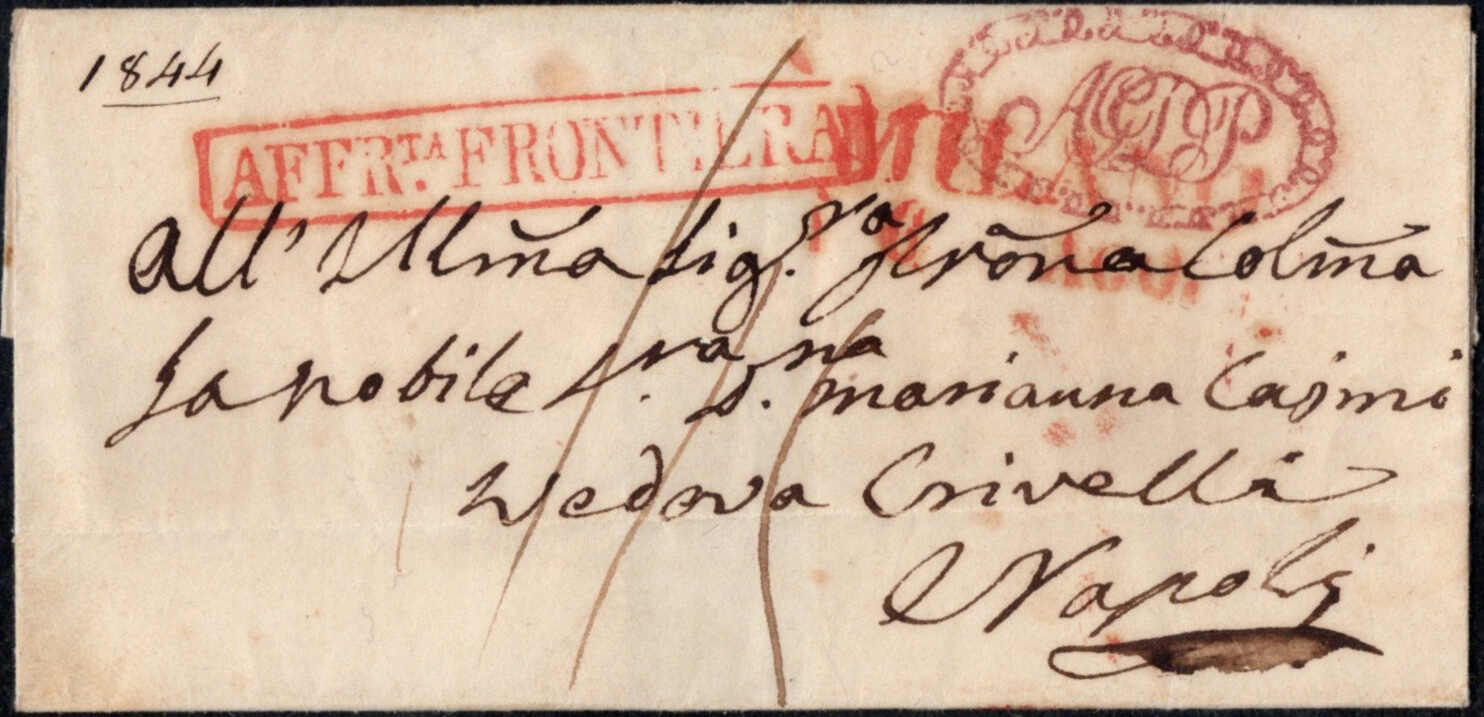 1844
AFFR.TA FRONTIERA
MILANO
AGDP
All' Illm̃a Sig.ra Prõna Colm̃a
La nobile S.ra D.na Marianna
Vedova Crivelli
Napoli